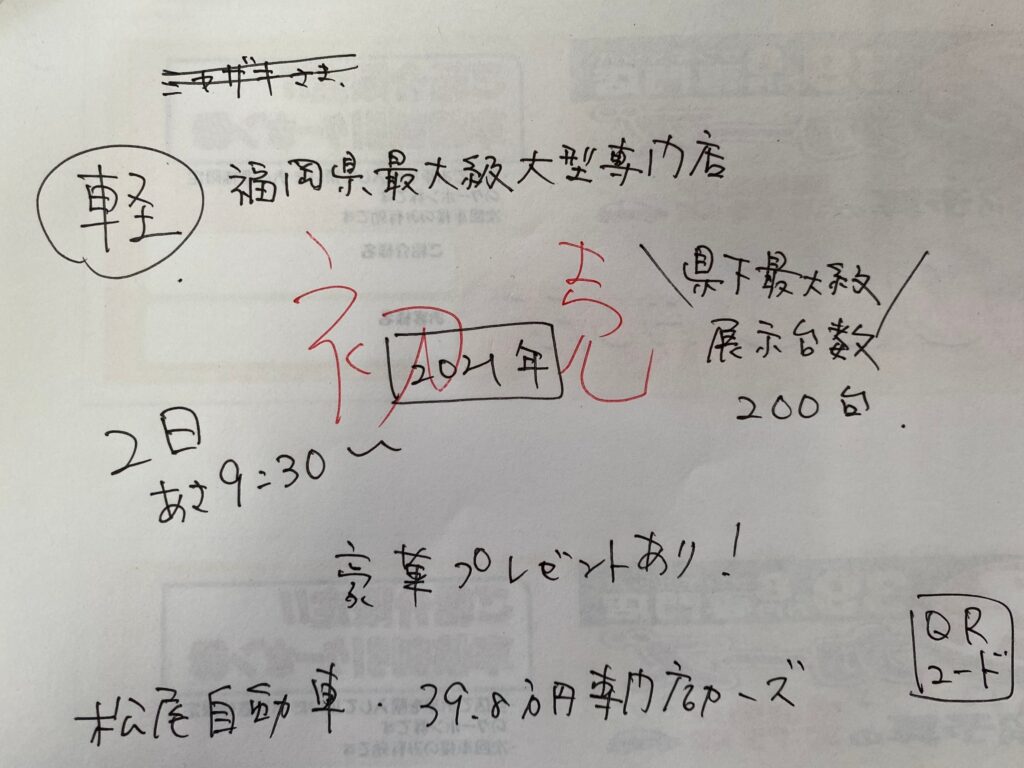 軽
福岡県最大級大型専門店
初売
2021年
県下最大級
展示台数
200台
2日
あさ9:30〜
豪華プレゼントあり!
QR
コード
松尾自動車・39.8万円専門店カーズ